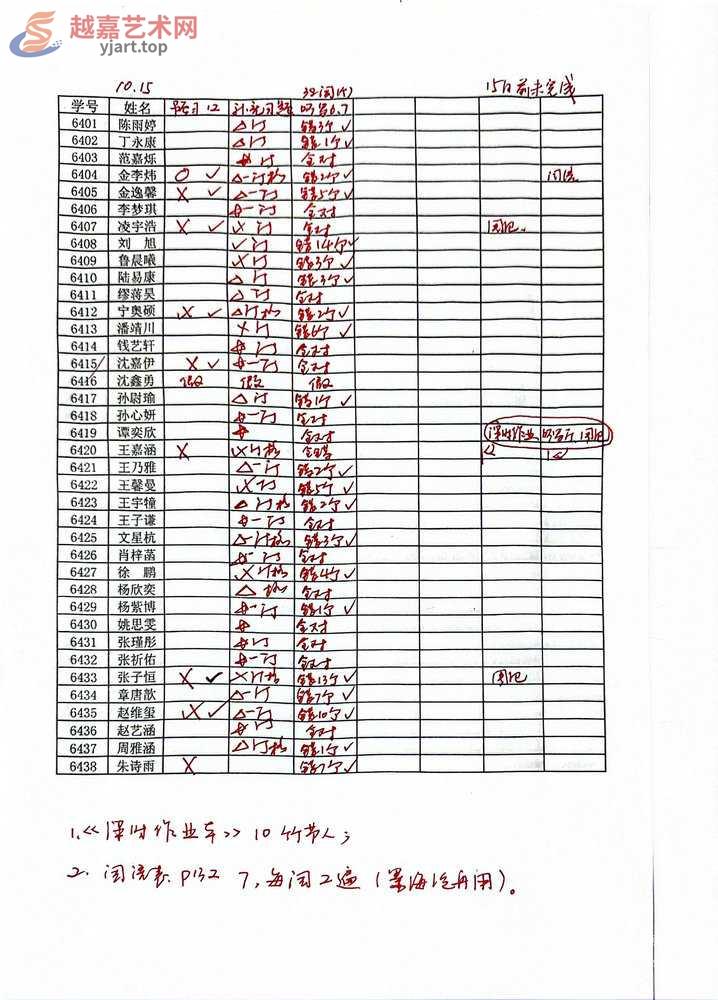 越嘉艺术网
yjart.top
10.15 15日前未完成
学号 姓名 预习12 补充习题 默写6.7
6401 陈雨婷 △订 错3个✓
6402 丁永康 △订 错1个✓
6403 范嘉烁 订 全对
6404 金李炜 ○ ✓ △-订 错2个✓
6405 金逸馨 × ✓ △-订 错5个✓
6406 李梦琪 订 全对
6407 凌宇浩 × ✓ ×订 全对
6408 刘 旭 ✓订 错14个✓
6409 鲁晨曦 ×订 错3个✓
6410 陆易康 △订 错3个✓
6411 缪蒋昊 △订 全对
6412 宁奥硕 × ✓ △订 错2个✓
6413 潘靖川 ×订 错6个✓
6414 钱艺轩 订 全对
6415 沈嘉伊 × ✓ 订 全对
6416 沈鑫勇 假 假 假
6417 孙尉瑜 △订 错1个✓
6418 孙心妍 订 全对
6419 谭奕欣 全对
6420 王嘉涵 × ×订 全错
6421 王乃雅 △-订 错2个✓
6422 王馨曼 ×订 错5个✓
6423 王宇橦 △订 错2个✓
6424 王子谦 订 全对
6425 文星杭 △-订 错3个✓
6426 肖梓菡 订 全对
6427 徐 鹏 ×订 错4个✓
6428 杨欣奕 △ 全对
6429 杨紫博 订 错1个✓
6430 姚思雯 全对
6431 张瑾彤 订 全对
6432 张祈佑 订 全对
6433 张子恒 × ✓ ×订 错13个✓
6434 章唐歆 △-订 错7个✓
6435 赵维玺 × ✓ △-订 错10个✓
6436 赵艺涵 订 全对
6437 周雅涵 △订 错1个✓
6438 朱诗雨 × 错7个✓
1.《课时作业本》10 竹节人;
2. 词语表 P132 7,每词2遍